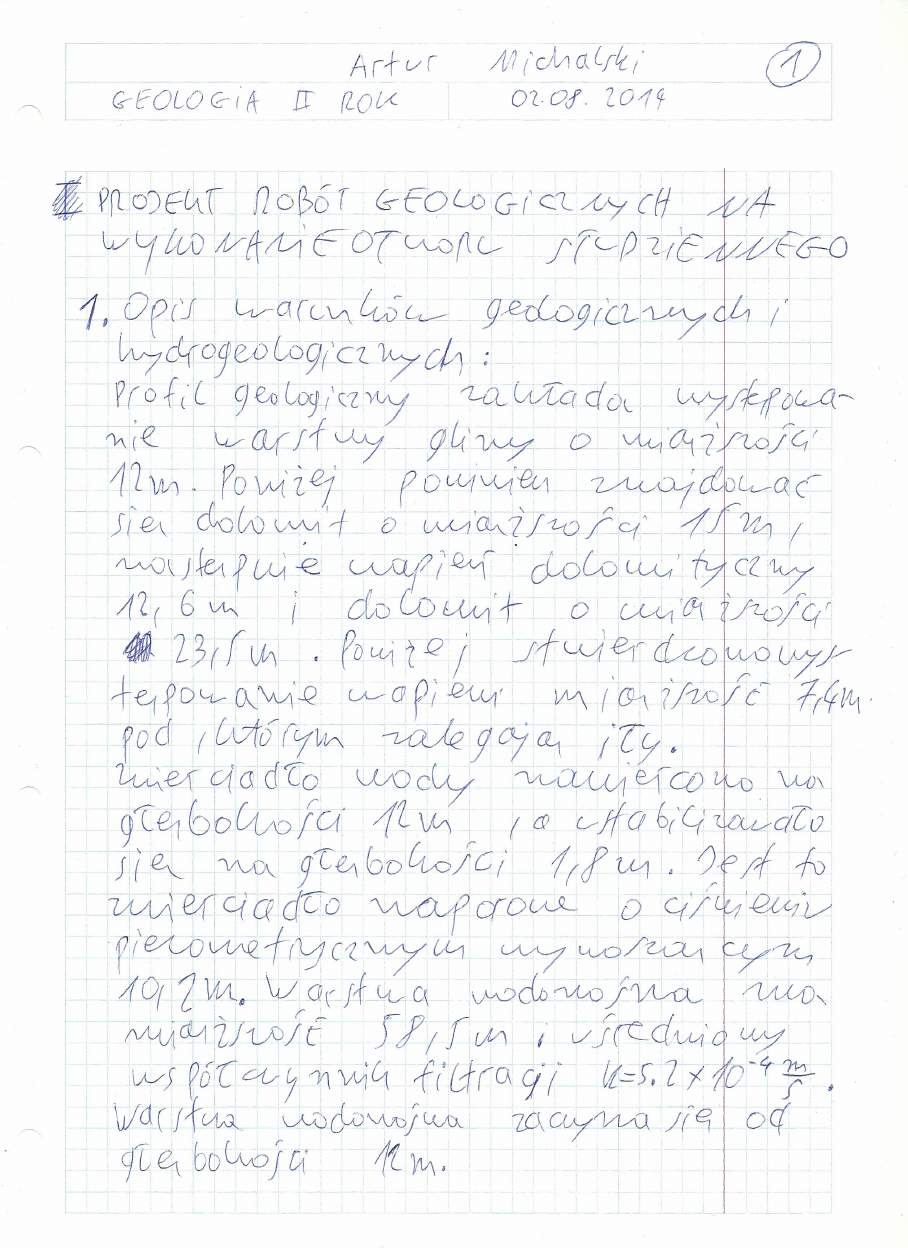 Artur Michalski 1
GEOLOGIA II ROK 02.08.2014
I PROJEKT ROBÓT GEOLOGICZNYCH NA
WYKONANIE OTWORU STUDZIENNEGO
1. Opis warunków geologicznych i
hydrogeologicznych:
Profil geologiczny zakłada występowa-
nie warstwy gliny o miąższości
12m. Poniżej powinien znajdować
się dolomit o miąższości 15m,
następnie wapień dolomityczny
12,6m i dolomit o miąższości
23,5m. Poniżej stwierdzono wys
tępowanie wapieni miąższość 7,4m.
pod którym zalegają iły.
Zwierciadło wody nawiercono na
głębokości 12m, a ustabilizowało
się na głębokości 1,8m. Jest to
zwierciadło naporowe o ciśnieniu
piezometrycznym wynoszącym
10,2m. Warstwa wodonośna ma
miąższość 58,5m i uśredniony
współczynnik filtracji k=5.2×10⁻⁴ m/s.
Warstwa wodonośna zaczyna się od
głębokości 12m.